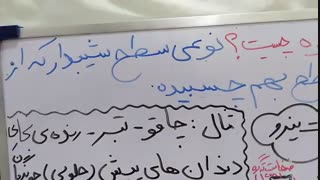 وه چیست؟ نوعی سطح شیبدار که از
طح بهم چسبیده.
مثال: چاقو - تبر - رنده ی
دندان های پیش (جلویی)